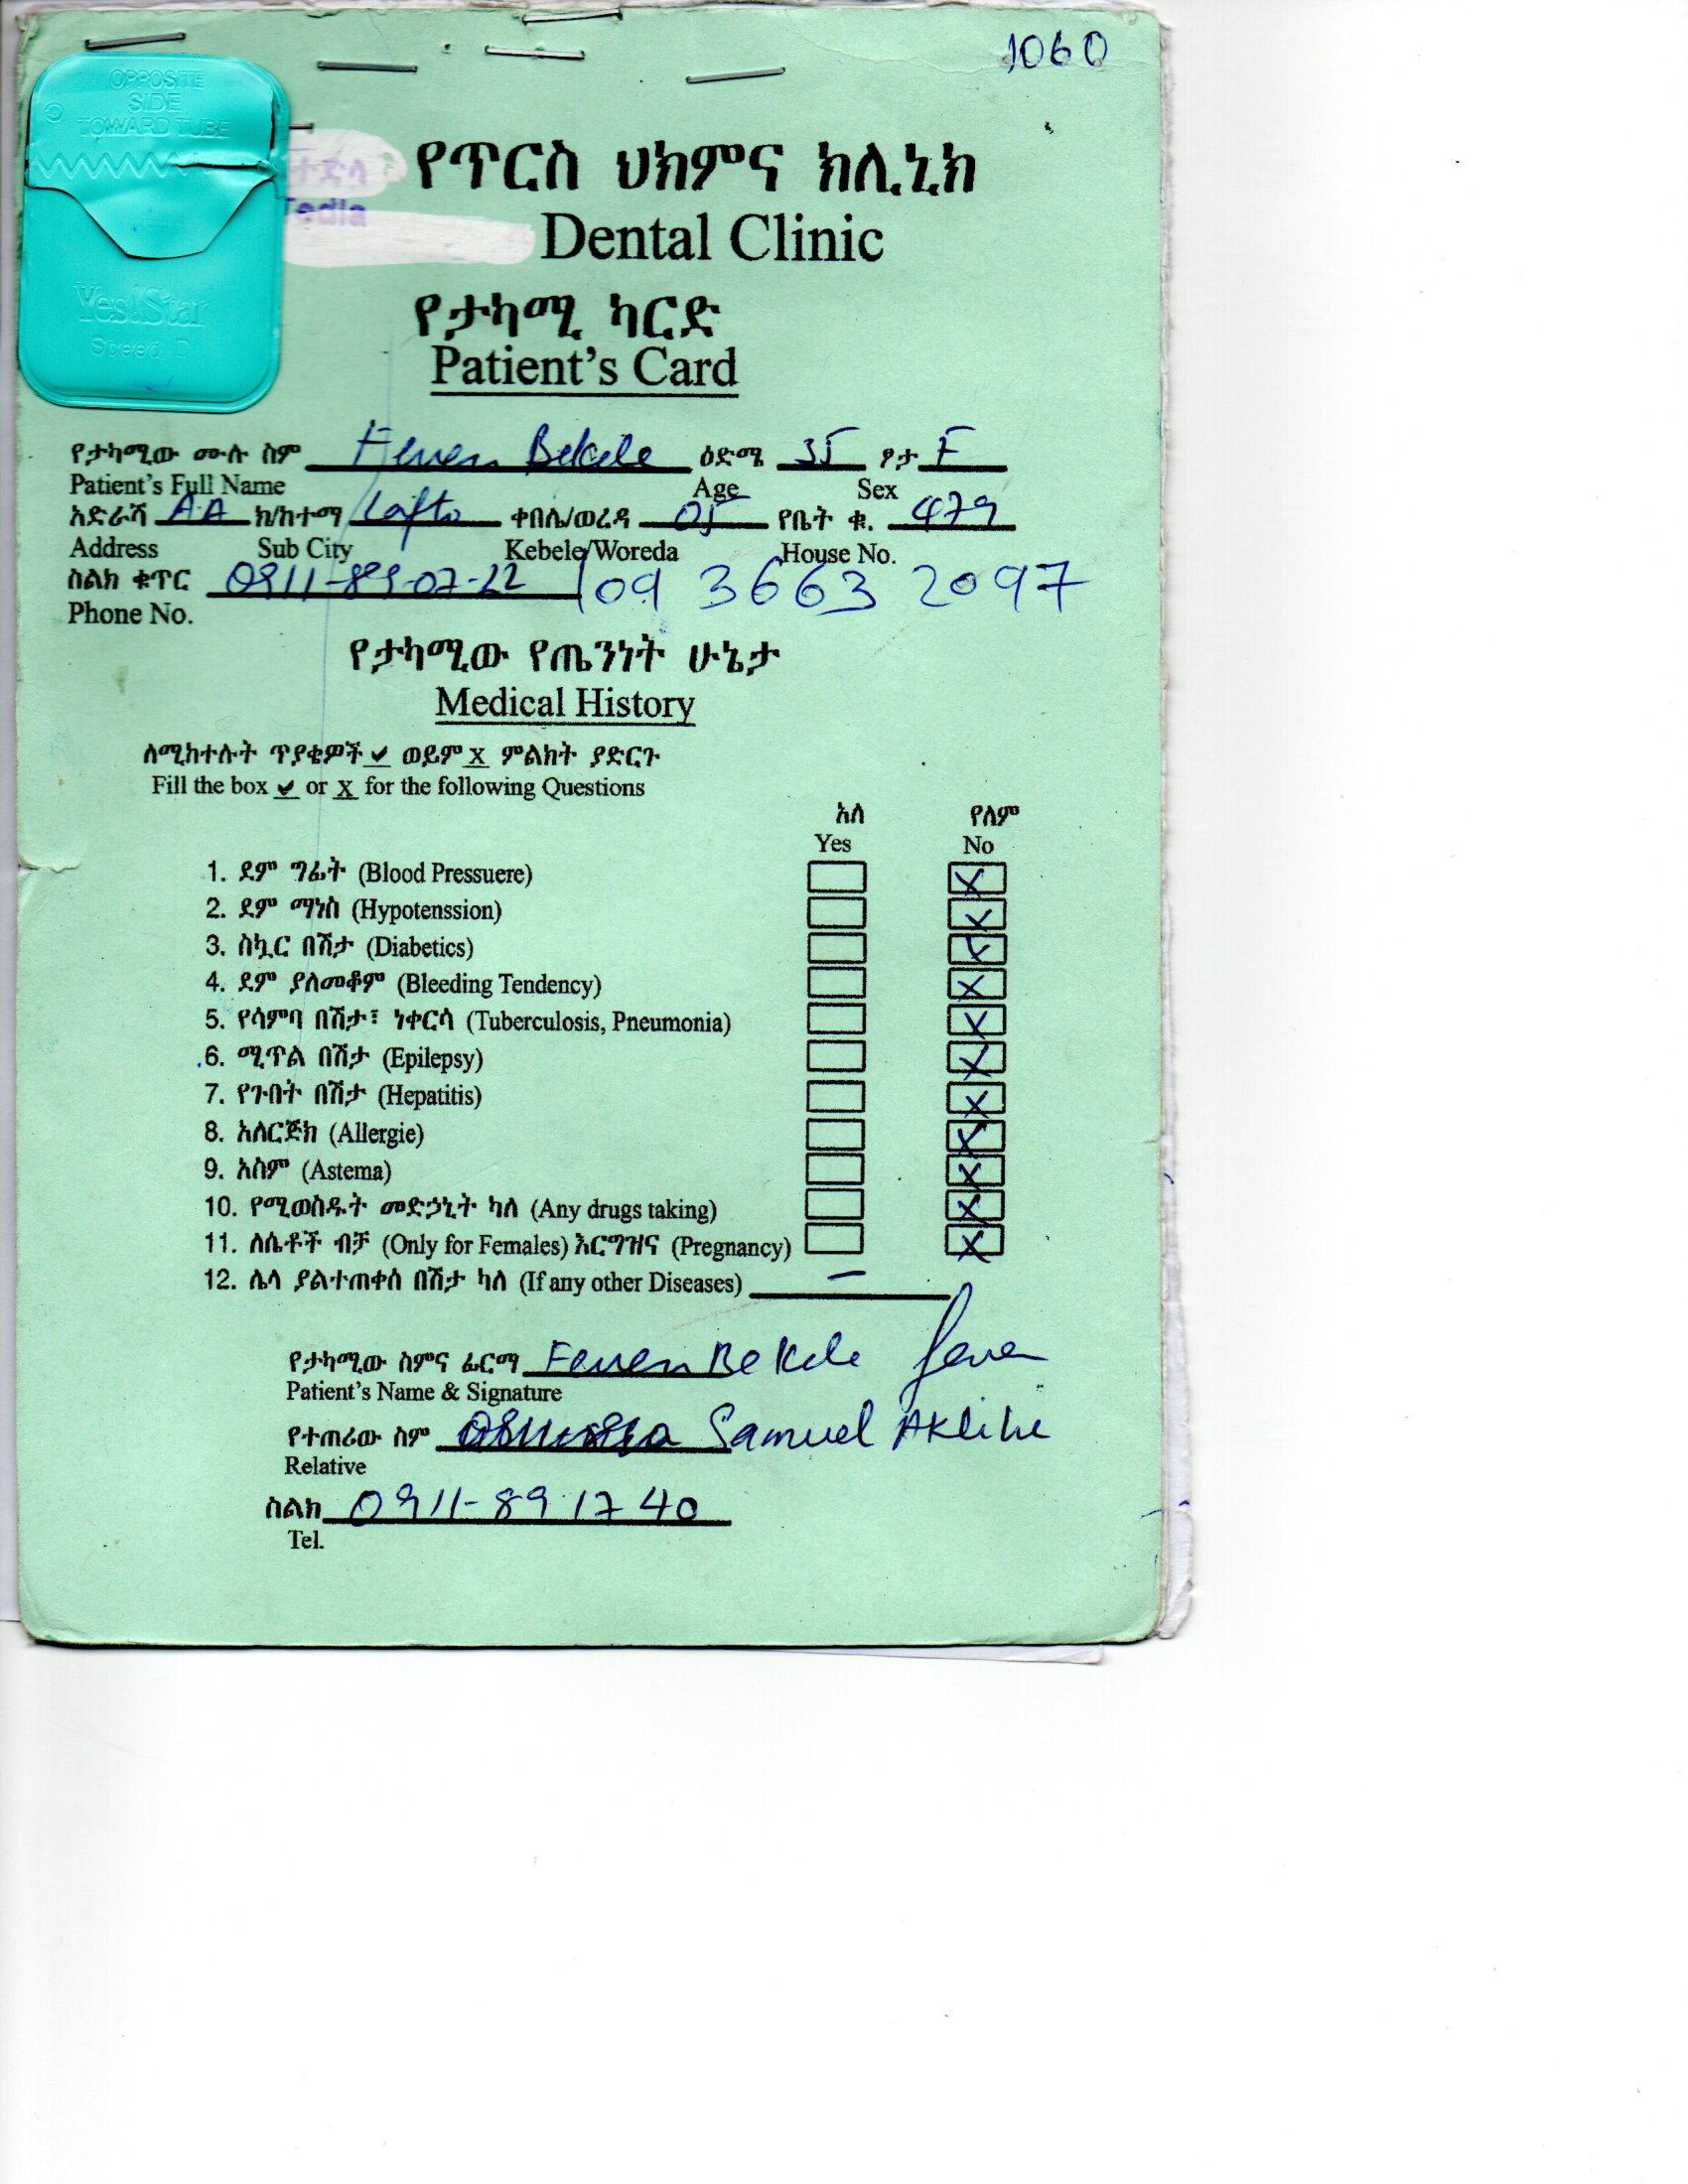 1060
OPPOSITE
SIDE
TOWARD TUBE
ተድላ
Tedla
የጥርስ ህክምና ክሊኒክ
Dental Clinic
Yes!Star
Speed D
የታካሚ ካርድ
Patient's Card
የታካሚው ሙሉ ስም Feven Bekele ዕድሜ 35 ፆታ F
Patient's Full Name Age Sex
አድራሻ A.A ክ/ከተማ Lafto ቀበሌ/ወረዳ 05 የቤት ቁ. 479
Address Sub City Kebele/Woreda House No.
ስልክ ቁጥር 0911-89-07-22 / 09 3663 2097
Phone No.
የታካሚው የጤንነት ሁኔታ
Medical History
ለሚከተሉት ጥያቄዎች ✔ ወይም x ምልክት ያድርጉ
Fill the box ✔ or x for the following Questions
አለ የለም
Yes No
1. ደም ግፊት (Blood Pressuere) X
2. ደም ማነስ (Hypotenssion) X
3. ስኳር በሽታ (Diabetics) X
4. ደም ያለመቆም (Bleeding Tendency) X
5. የሳምባ በሽታ፣ ነቀርሳ (Tuberculosis, Pneumonia) X
6. ሚጥል በሽታ (Epilepsy) X
7. የጉበት በሽታ (Hepatitis) X
8. አለርጅክ (Allergie) X
9. አስም (Astema) X
10. የሚወስዱት መድኃኒት ካለ (Any drugs taking) X
11. ለሴቶች ብቻ (Only for Females) እርግዝና (Pregnancy) X
12. ሌላ ያልተጠቀሰ በሽታ ካለ (If any other Diseases) –
የታካሚው ስምና ፊርማ Feven Bekele feven
Patient's Name & Signature
የተጠሪው ስም Samuel Aklilu
Relative
ስልክ 0911-89 17 40
Tel.